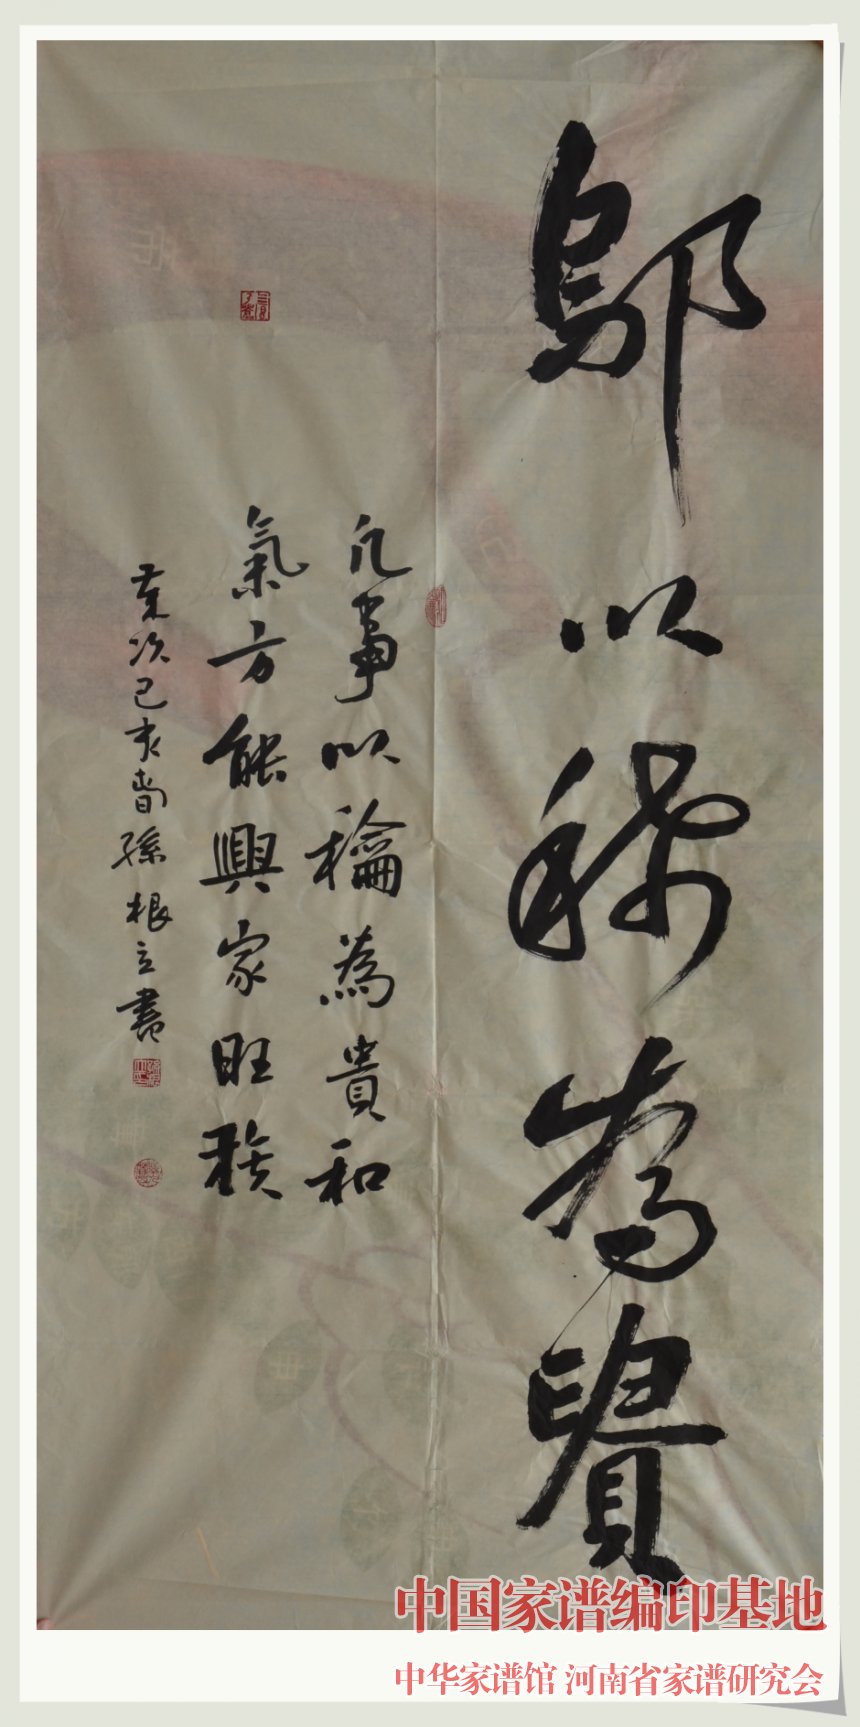 鄔以稀為賢
凡事以稐為貴和
氣方能興家旺族
歲次己亥春孫根立書
中国家谱编印基地
中华家谱馆 河南省家谱研究会